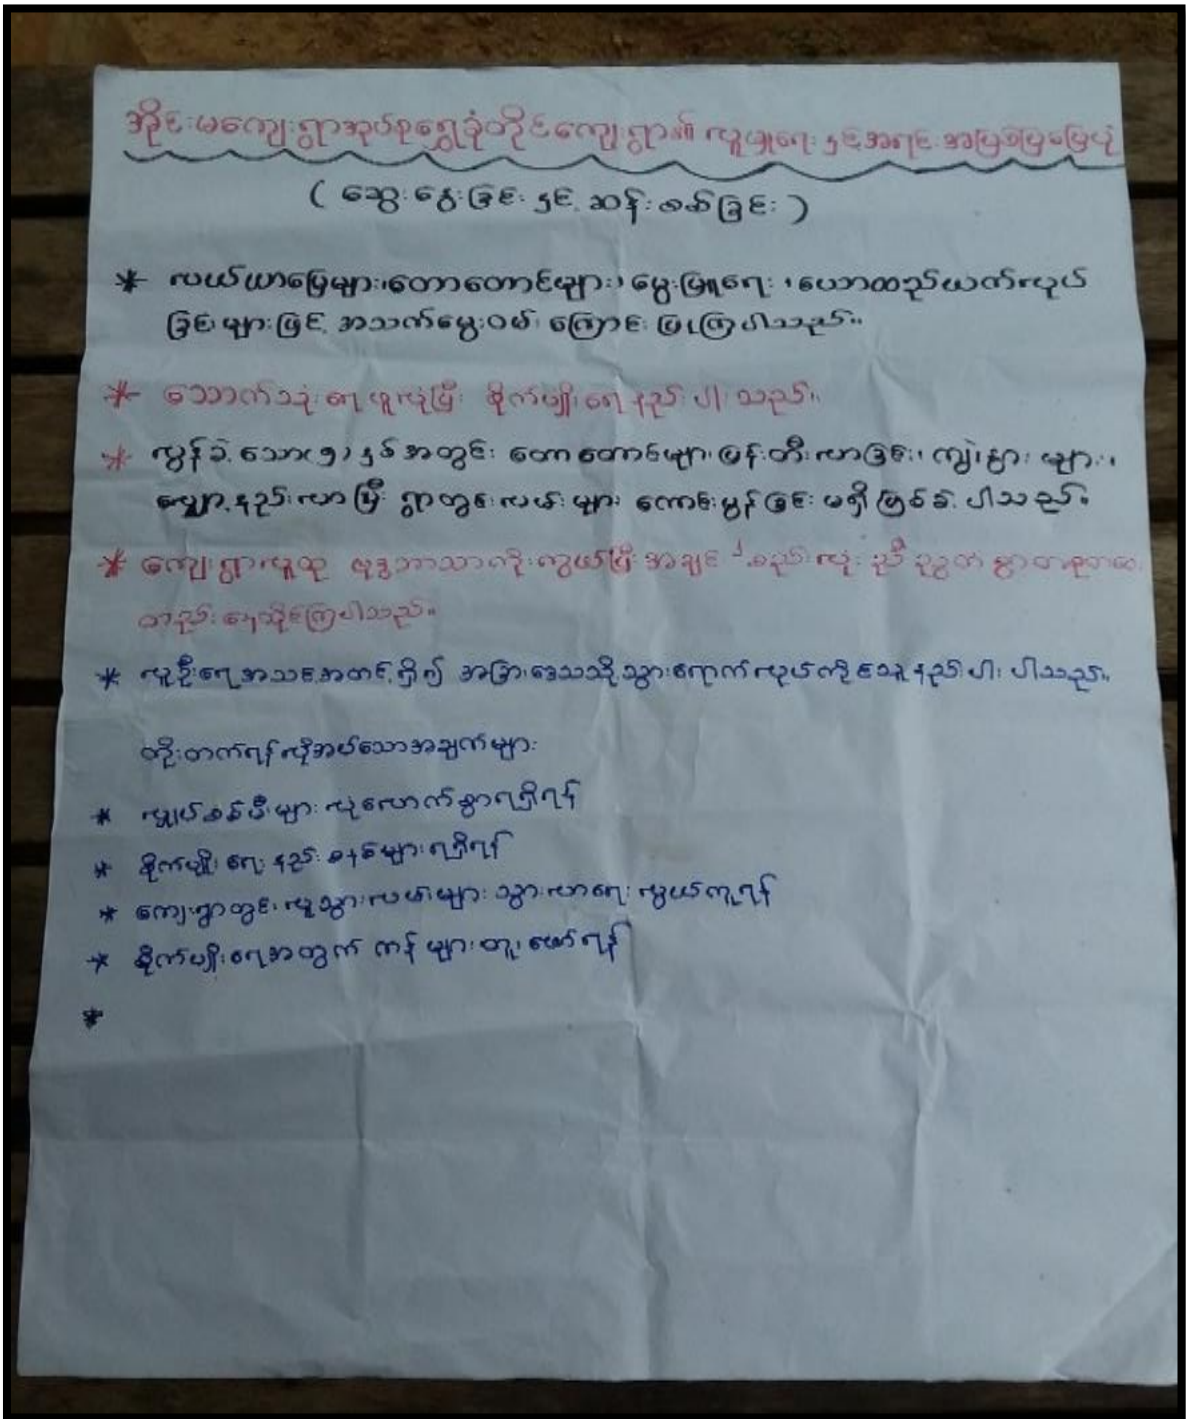 အိုင်းမကျေးရွာအုပ်စုရွှေခုံတိုင်ကျေးရွာ၏ လူမှုရေး နှင့်အရင်းအမြစ်ပြမြေပုံ
( ဆွေးနွေးခြင်း နှင့် ဆန်းစစ်ခြင်း )
* လယ်ယာမြေများ၊တောတောင်များ၊ မွေးမြူရေး ၊ယောထည်ယက်လုပ်
ခြင်းများဖြင့် အသက်မွေးဝမ်းကြောင်း ပြုကြပါသည်။
* သောက်သုံးရေ ဖူလုံပြီး စိုက်ပျိုးရေ နည်းပါးသည်။
* လွန်ခဲ့သော(၅)နှစ်အတွင်း တောတောင်များပြန်းတီးလာခြင်း၊ ကျွဲ၊နွား များ၊
လျော့နည်းလာပြီး ရွာတွင်းလမ်းများ ကောင်းမွန်ခြင်း မရှိဖြစ်ခဲ့ပါသည်။
* ကျေးရွာလူထု ဗုဒ္ဓဘာသာကိုးကွယ်ပြီး အချင်းချင်းစည်းလုံး ညီညွတ်စွာတစုတဝေး
တည်းနေထိုင်ကြပါသည်။
* လူဦးရေအသင့်အတင့်ရှိ၍ အခြားဒေသသို့သွားရောက်လုပ်ကိုင်သူနည်းပါးပါသည်။
တိုးတက်ရန်လိုအပ်သောအချက်များ
* လျှပ်စစ်မီးများ လုံလောက်စွာရရှိရန်
* စိုက်ပျိုးရေးနည်းစနစ်များရရှိရန်
* ကျေးရွာတွင်းလူသွားလမ်းများ သွားလာရေး လွယ်ကူရန်
* စိုက်ပျိုးရေအတွက် ကန်များတူးဖော်ရန်
*